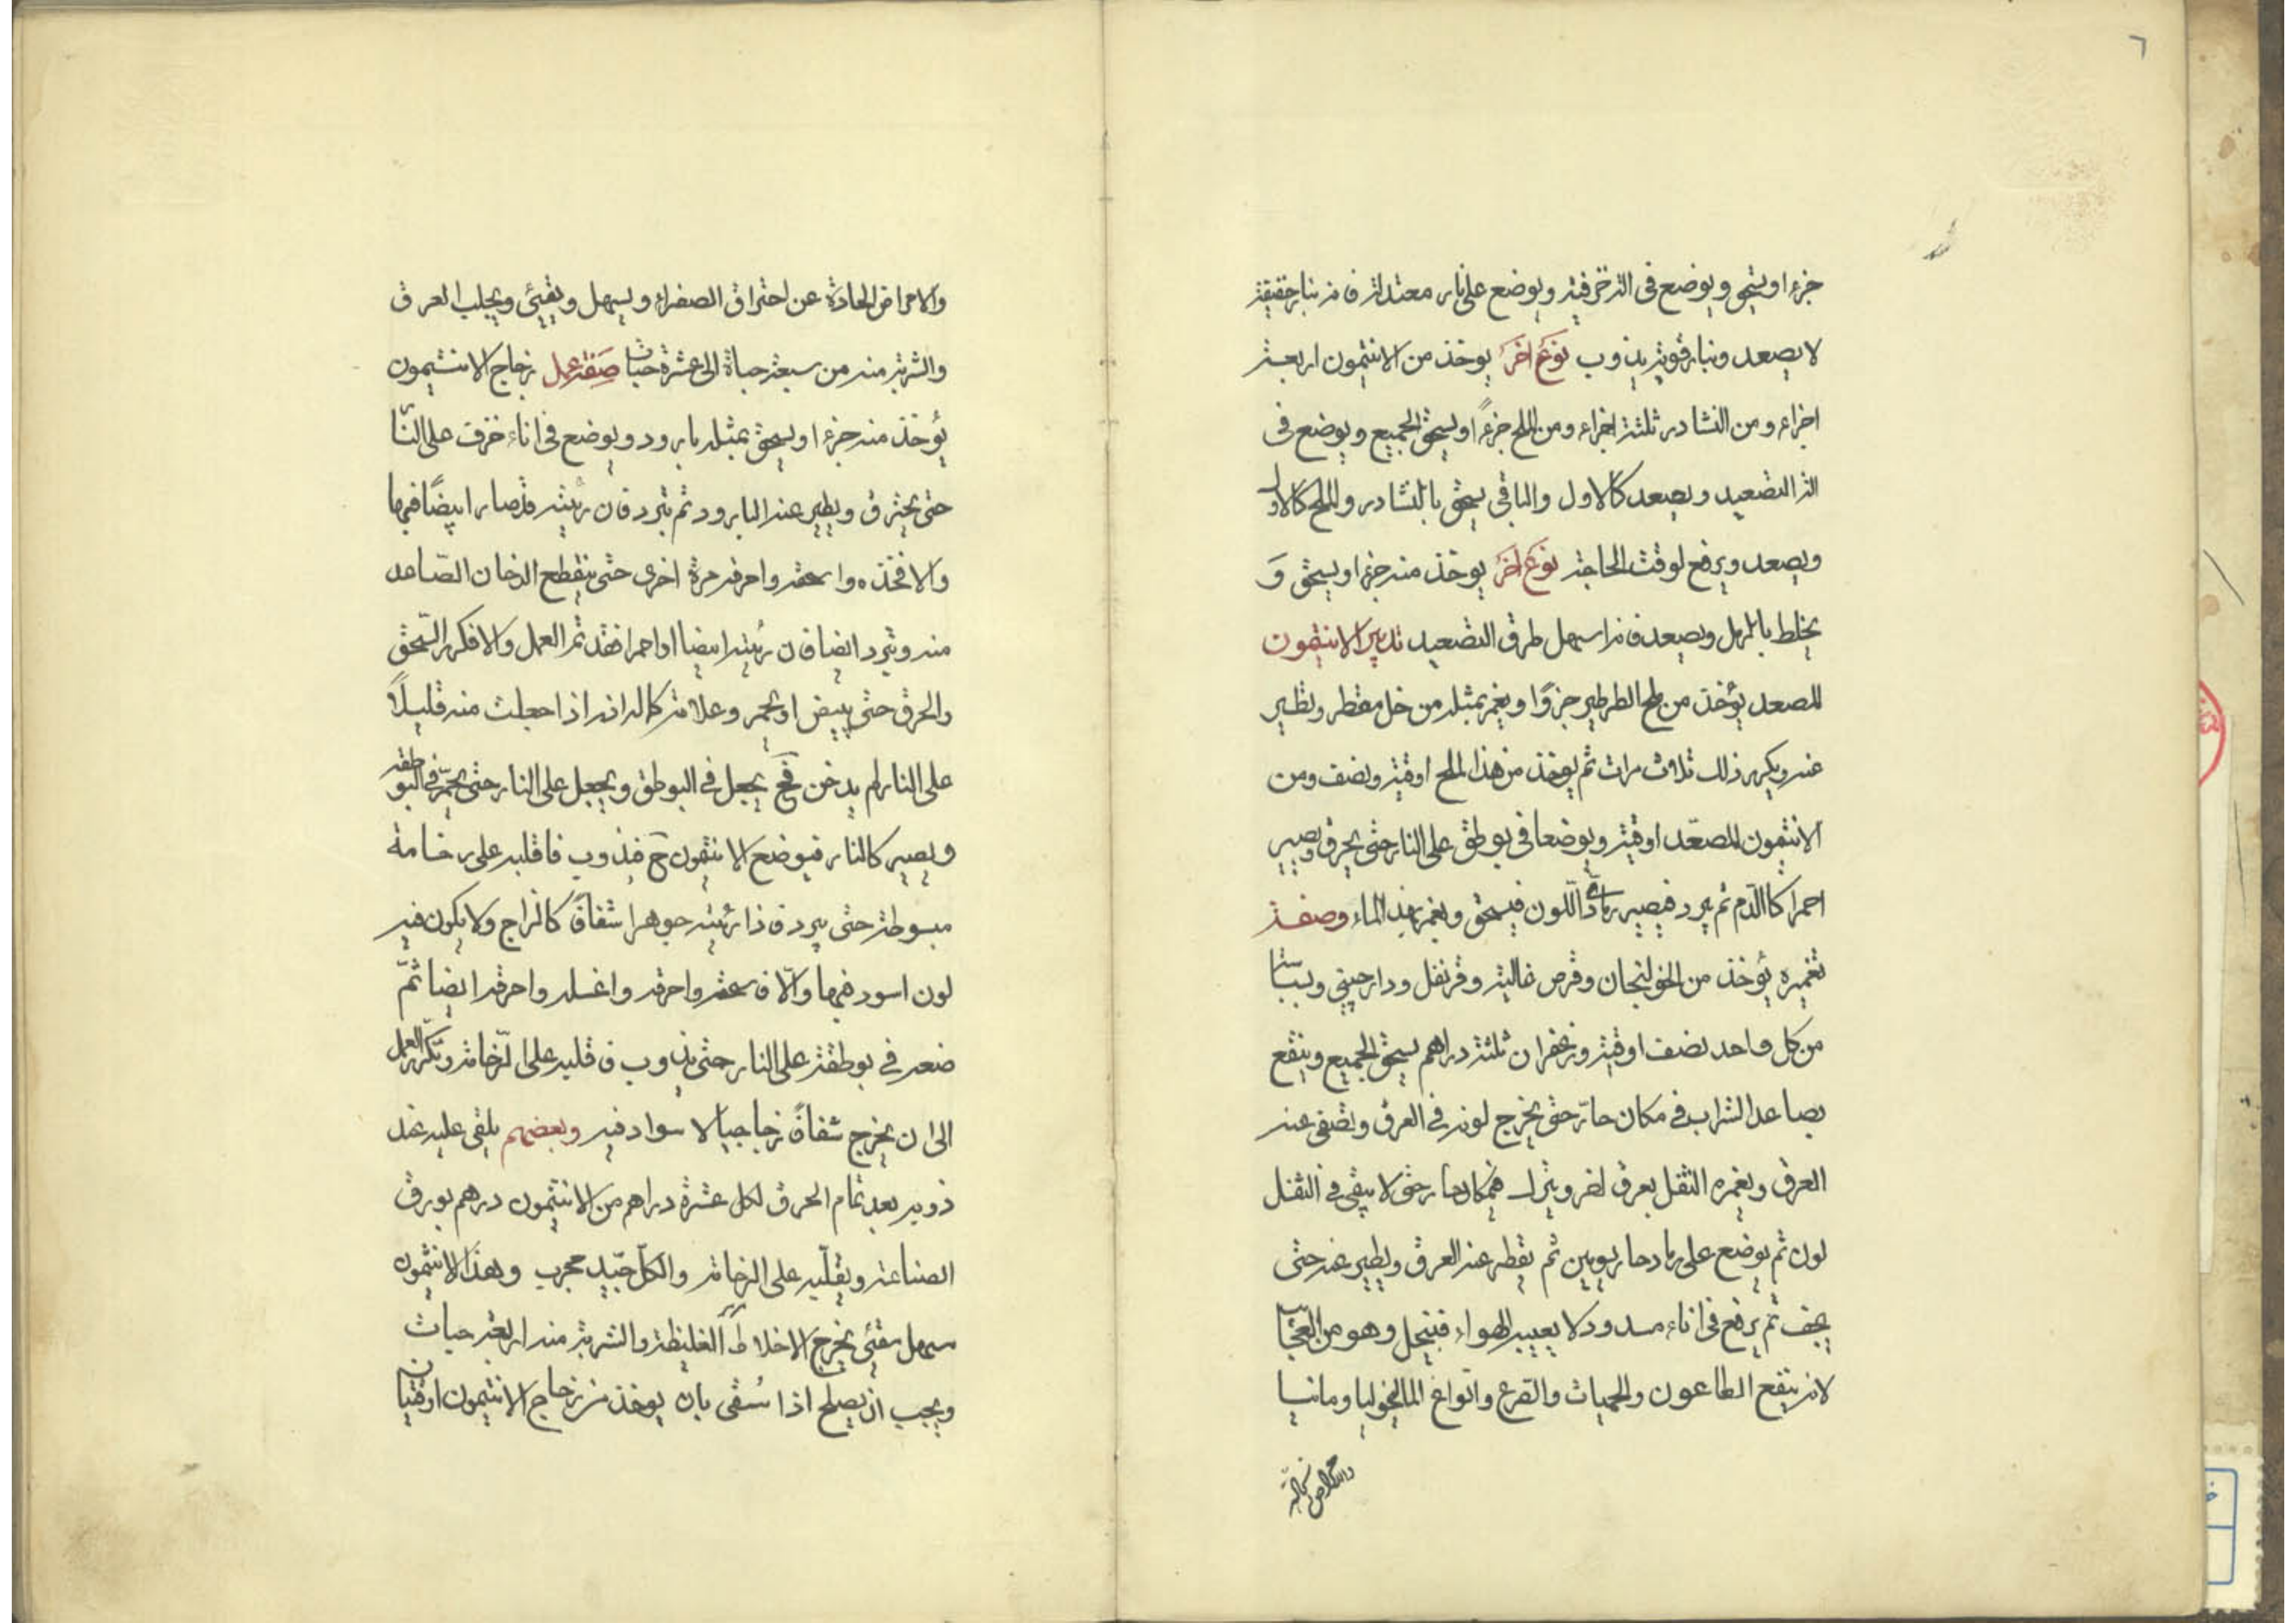 ٦
جزءا ويسحق ويوضع فى الة خزفية ويوضع على نار معتدلة فانه بنار خفيفة
لا يصعد وبنار قوية يذوب نوع اخر يوخذ من الانتيمون اربعة
اجزاء ومن النشادر ثلثة اجزاء ومن الملح جزءًا ويسحق الجميع ويوضع فى
الة التصعيد ويصعد كالاول والباقى يسحق بالنشادر والملح كالاول
ويصعد ويرفع لوقت الحاجة نوع اخر يوخذ منه جزءا ويسحق وَ
يخلط بالرمل ويصعد فانه اسهل طرق التصعيد تدبير الانتيمون
المصعد يؤخذ من ملح الطرطير جزوًا ويغمر بمثله من خل مقطر ويطير
عنه ويكرر ذلك ثلاث مرات ثم يوخذ من هذا الملح اوقية ونصف ومن
الانتيمون المصعّد اوقية ويوضعا فى بوطق على النار حتى يحرق ويصير
احمرا كاالدّم ثم يبرد فيصير رمادىّ اللّون فيسحق ويغمر بهذا الماء وصفة
تغميره يؤخذ من الخولنجان وقرص غالية وقرنفل ودارچينى وبسباسة
من كل واحد نصف اوقية وزعفران ثلثة دراهم يسحق الجميع وينقع
بصاعد الشراب فى مكان حارّ حتى يخرج لونه فى العرق ويصفى عنه
العرق ويغمره الثقل بعرق اخر ويترك فى مكان حار حتى لا يبقى فى الثقل
لون ثم يوضع على رماد حار يومين ثم يقطر عنه العرق ويطير عنه حتى
يجف ثم يرفع فى اناء مسدود لا يعيبه الهواء فينحل وهو من العجائب
لانه ينفع الطاعون والحميات والصرع وانواع المالیخوليا ومانيا
والامراض الحادثة
والامراض الحادثة عن احتراق الصفراء ويسهل ويقيئ ويجلب العرق
والشربة منه من سبعة حباة الى عشرة حبات صفة عمل زجاج الانتيمون
يؤخذ منه جزءا ويسحق بمثله بارود ويوضع فى اناء خزف على النّار
حتى يحترق ويطير عنه البارود ثم يبرد فان رئيته قد صار ابيضًا فبها
والا فخذه واسحقه واحرقه مرة اخرى حتى ينقطع الدخان الصّاعد
منه ويبرد ايضا فان رُئيته ابيضا او احمرا فقد تم العمل والا فكرر السّحق
والحرق حتى يبيض او يحمر وعلامة كماله انه اذا جعلت منه قليلًا
على النار لم يدخن فح يجعل فى البوطق ويجعل على النار حتى يحمّر فى البوطقة
ويصير كالنار فيوضع الانتيمون ح فيذوب فاقلبه على رخامة
مبسوطة حتى يبرد فاذا رئيته جوهرا شفافًا كالزاج ولا يكون فيه
لون اسود فبها والّا فاسحقه واحرقه واغسله واحرقه ايضًا ثمّ
ضعه فى بوطقة على النار حتى يذوب فاقلبه على الرّخامة وتكّرر العمل
الى ان يخرج شفافًا زجاجيا لا سواد فيه وبعضهم يلقى عليه عند
ذوبه بعد تمام الحرق لكل عشرة دراهم من الانتيمون درهم بورق
الصناعة ويقلّبه على الرخامة والكلّ جيّد مجرب وهذا الانتيمون
مسهل مقيئ يخرج الاخلاط الغليظة والشربة منه اربعة حبات
ويجب ان يصلح اذا سُقى بان يوخذ من زجاج الانتيمون اوقيتان